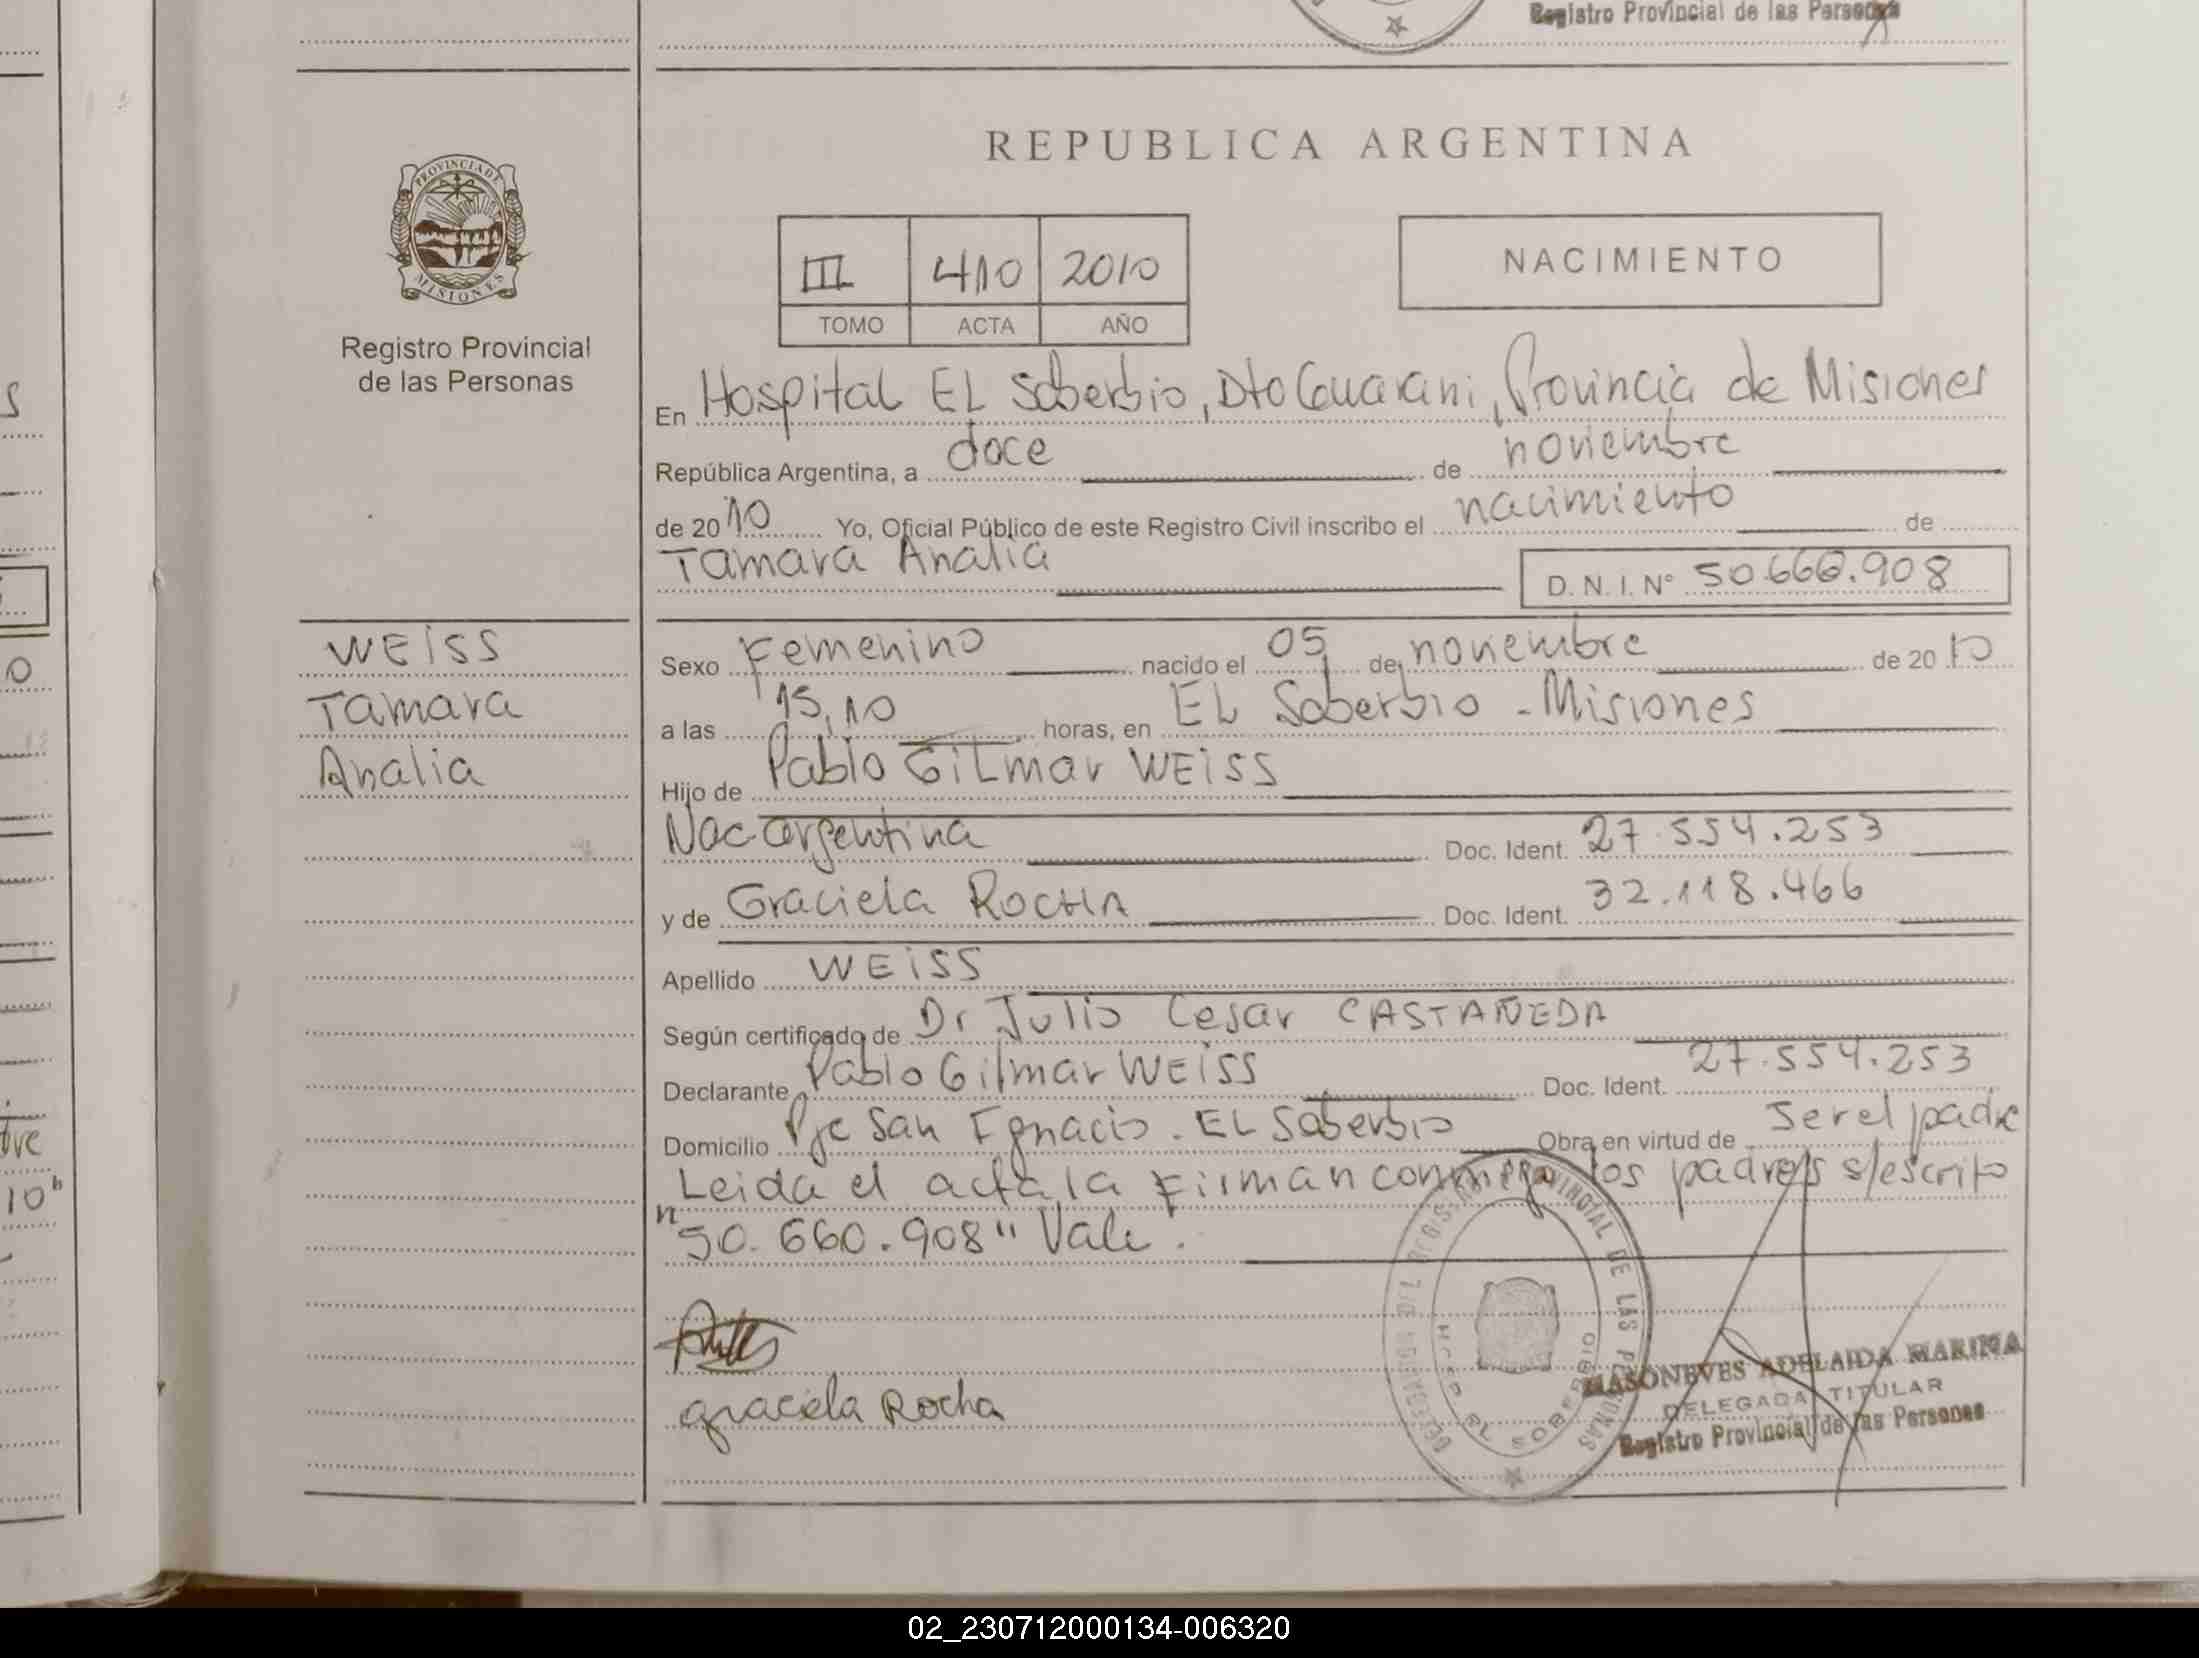 Registro Provincial de las Personas
PROVINCIA DE
MISIONES
Registro Provincial
de las Personas
WEISS
Tamara
Analia
REPUBLICA ARGENTINA
III 410 2010
TOMO ACTA AÑO
NACIMIENTO
En Hospital EL Soberbio, Dto Guarani, Provincia de Misiones
República Argentina, a doce de noviembre
de 2010 Yo, Oficial Público de este Registro Civil inscribo el nacimiento de
Tamara Analia D.N.I. N° 50.660.908
Sexo Femenino nacido el 05 de noviembre de 2010
a las 15,10 horas, en EL Soberbio - Misiones
Hijo de Pablo Gilmar WEISS
Nac argentina Doc. Ident. 27.554.253
y de Graciela ROCHA Doc. Ident. 32.118.466
Apellido WEISS
Según certificado de Dr Julio Cesar CASTAÑEDA
Declarante Pablo Gilmar WEISS Doc. Ident. 27.554.253
Domicilio Pje San Ignacio. EL Soberbio Obra en virtud de ser el padre
Leida el acta, la firman conmigo los padres s/escrito
"50.660.908" Vale.
graciela Rocha
DELEGACION DEL REGISTRO PROVINCIAL DE LAS PERSONAS
EL SOBERBIO
MASONEVES ADELAIDA MARINA
DELEGADA TITULAR
Registro Provincial de las Personas
02_230712000134-006320